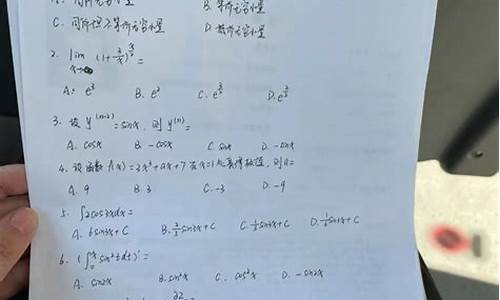 A. 同阶无穷小量 B. 等价无穷小量
C. 同阶但不等价无穷小量 D.
2. lim (1+
A. e³ B. e² C. D.
3. 设 y⁽ⁿ⁻²⁾ = sinx, 则 y⁽ⁿ⁾ =
A. cosx B. -cosx C. sinx D. -sinx
4. 设函数 f(x) = 2x³+ax+7 在 x=1处取得极值, 则a=
A. 9 B. 3 C. -3 D.
5. ∫2cos3xdx =
A. 6sin3x+C B. ⅔sin3x+C C. ⅓sin3x+C D. sin3x+C
6. (∫₀ˣ sin²tdt)' =
A. sin2x B. sin²x C. cos²x D. -sin2x